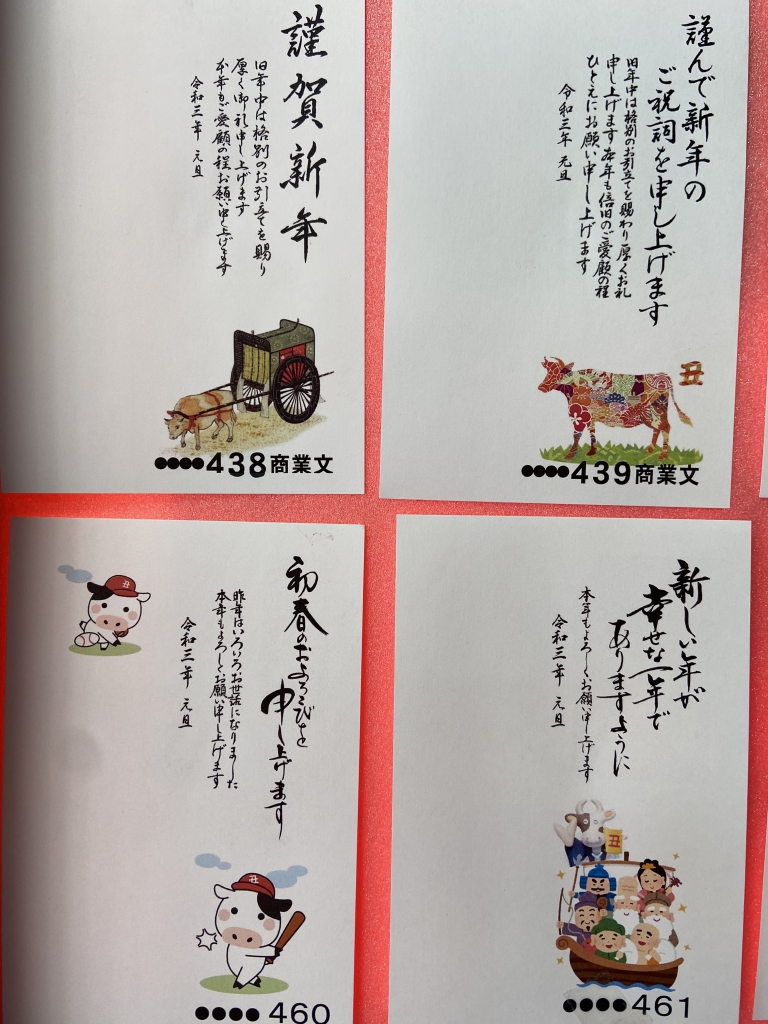 謹賀新年
旧年中は格別のお引立てを賜り
厚く御礼申し上げます
本年もご愛顧の程お願い申し上げます
令和三年 元旦
●●●●438商業文
謹んで新年の
ご祝詞を申し上げます
旧年中は格別のお引立てを賜わり厚くお礼
申し上げます本年も倍旧のご愛顧の程
ひとえにお願い申し上げます
令和三年 元旦
丑
●●●●439商業文
丑
初春のおよろこびを
申し上げます
昨年はいろいろお世話になりました
本年もよろしくお願い申し上げます
令和三年 元旦
丑
●●●●460
新しい年が
幸せな一年で
ありますように
本年もよろしくお願い申し上げます
令和三年 元旦
丑
●●●●461